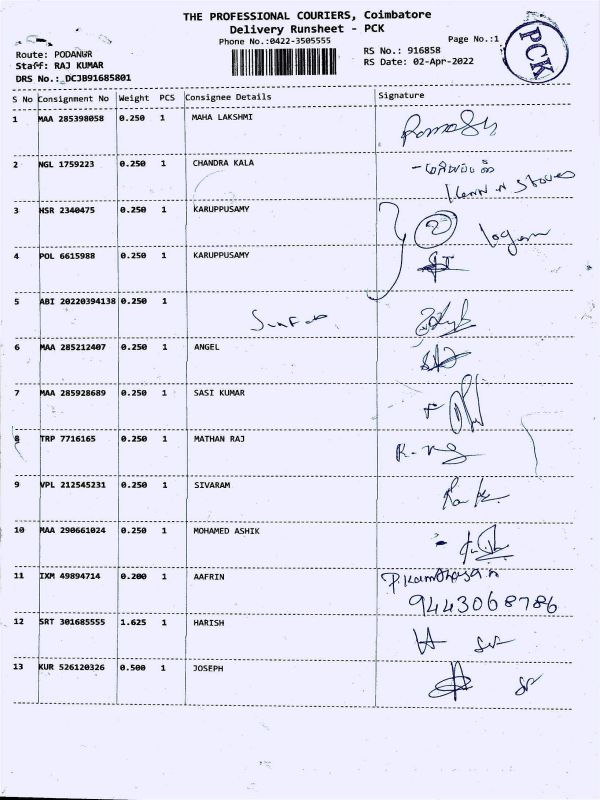 THE PROFESSIONAL COURIERS, Coimbatore
Delivery Runsheet - PCK
Phone No.:0422-3505555
Page No.:1
PCK
Route: PODANUR
Staff: RAJ KUMAR
DRS No.: DCJB91685801
RS No.: 916858
RS Date: 02-Apr-2022
S No Consignment No Weight PCS Consignee Details Signature
1 MAA 285398058 0.250 1 MAHA LAKSHMI
2 NGL 1759223 0.250 1 CHANDRA KALA
3 HSR 2340475 0.250 1 KARUPPUSAMY
4 POL 6615988 0.250 1 KARUPPUSAMY
5 ABI 20220394138 0.250 1
6 MAA 285212407 0.250 1 ANGEL
7 MAA 285928689 0.250 1 SASI KUMAR
8 TRP 7716165 0.250 1 MATHAN RAJ
9 VPL 212545231 0.250 1 SIVARAM
10 MAA 290661024 0.250 1 MOHAMED ASHIK
11 IXM 49894714 0.200 1 AAFRIN
9443068786
12 SRT 301685555 1.625 1 HARISH
13 KUR 526120326 0.500 1 JOSEPH